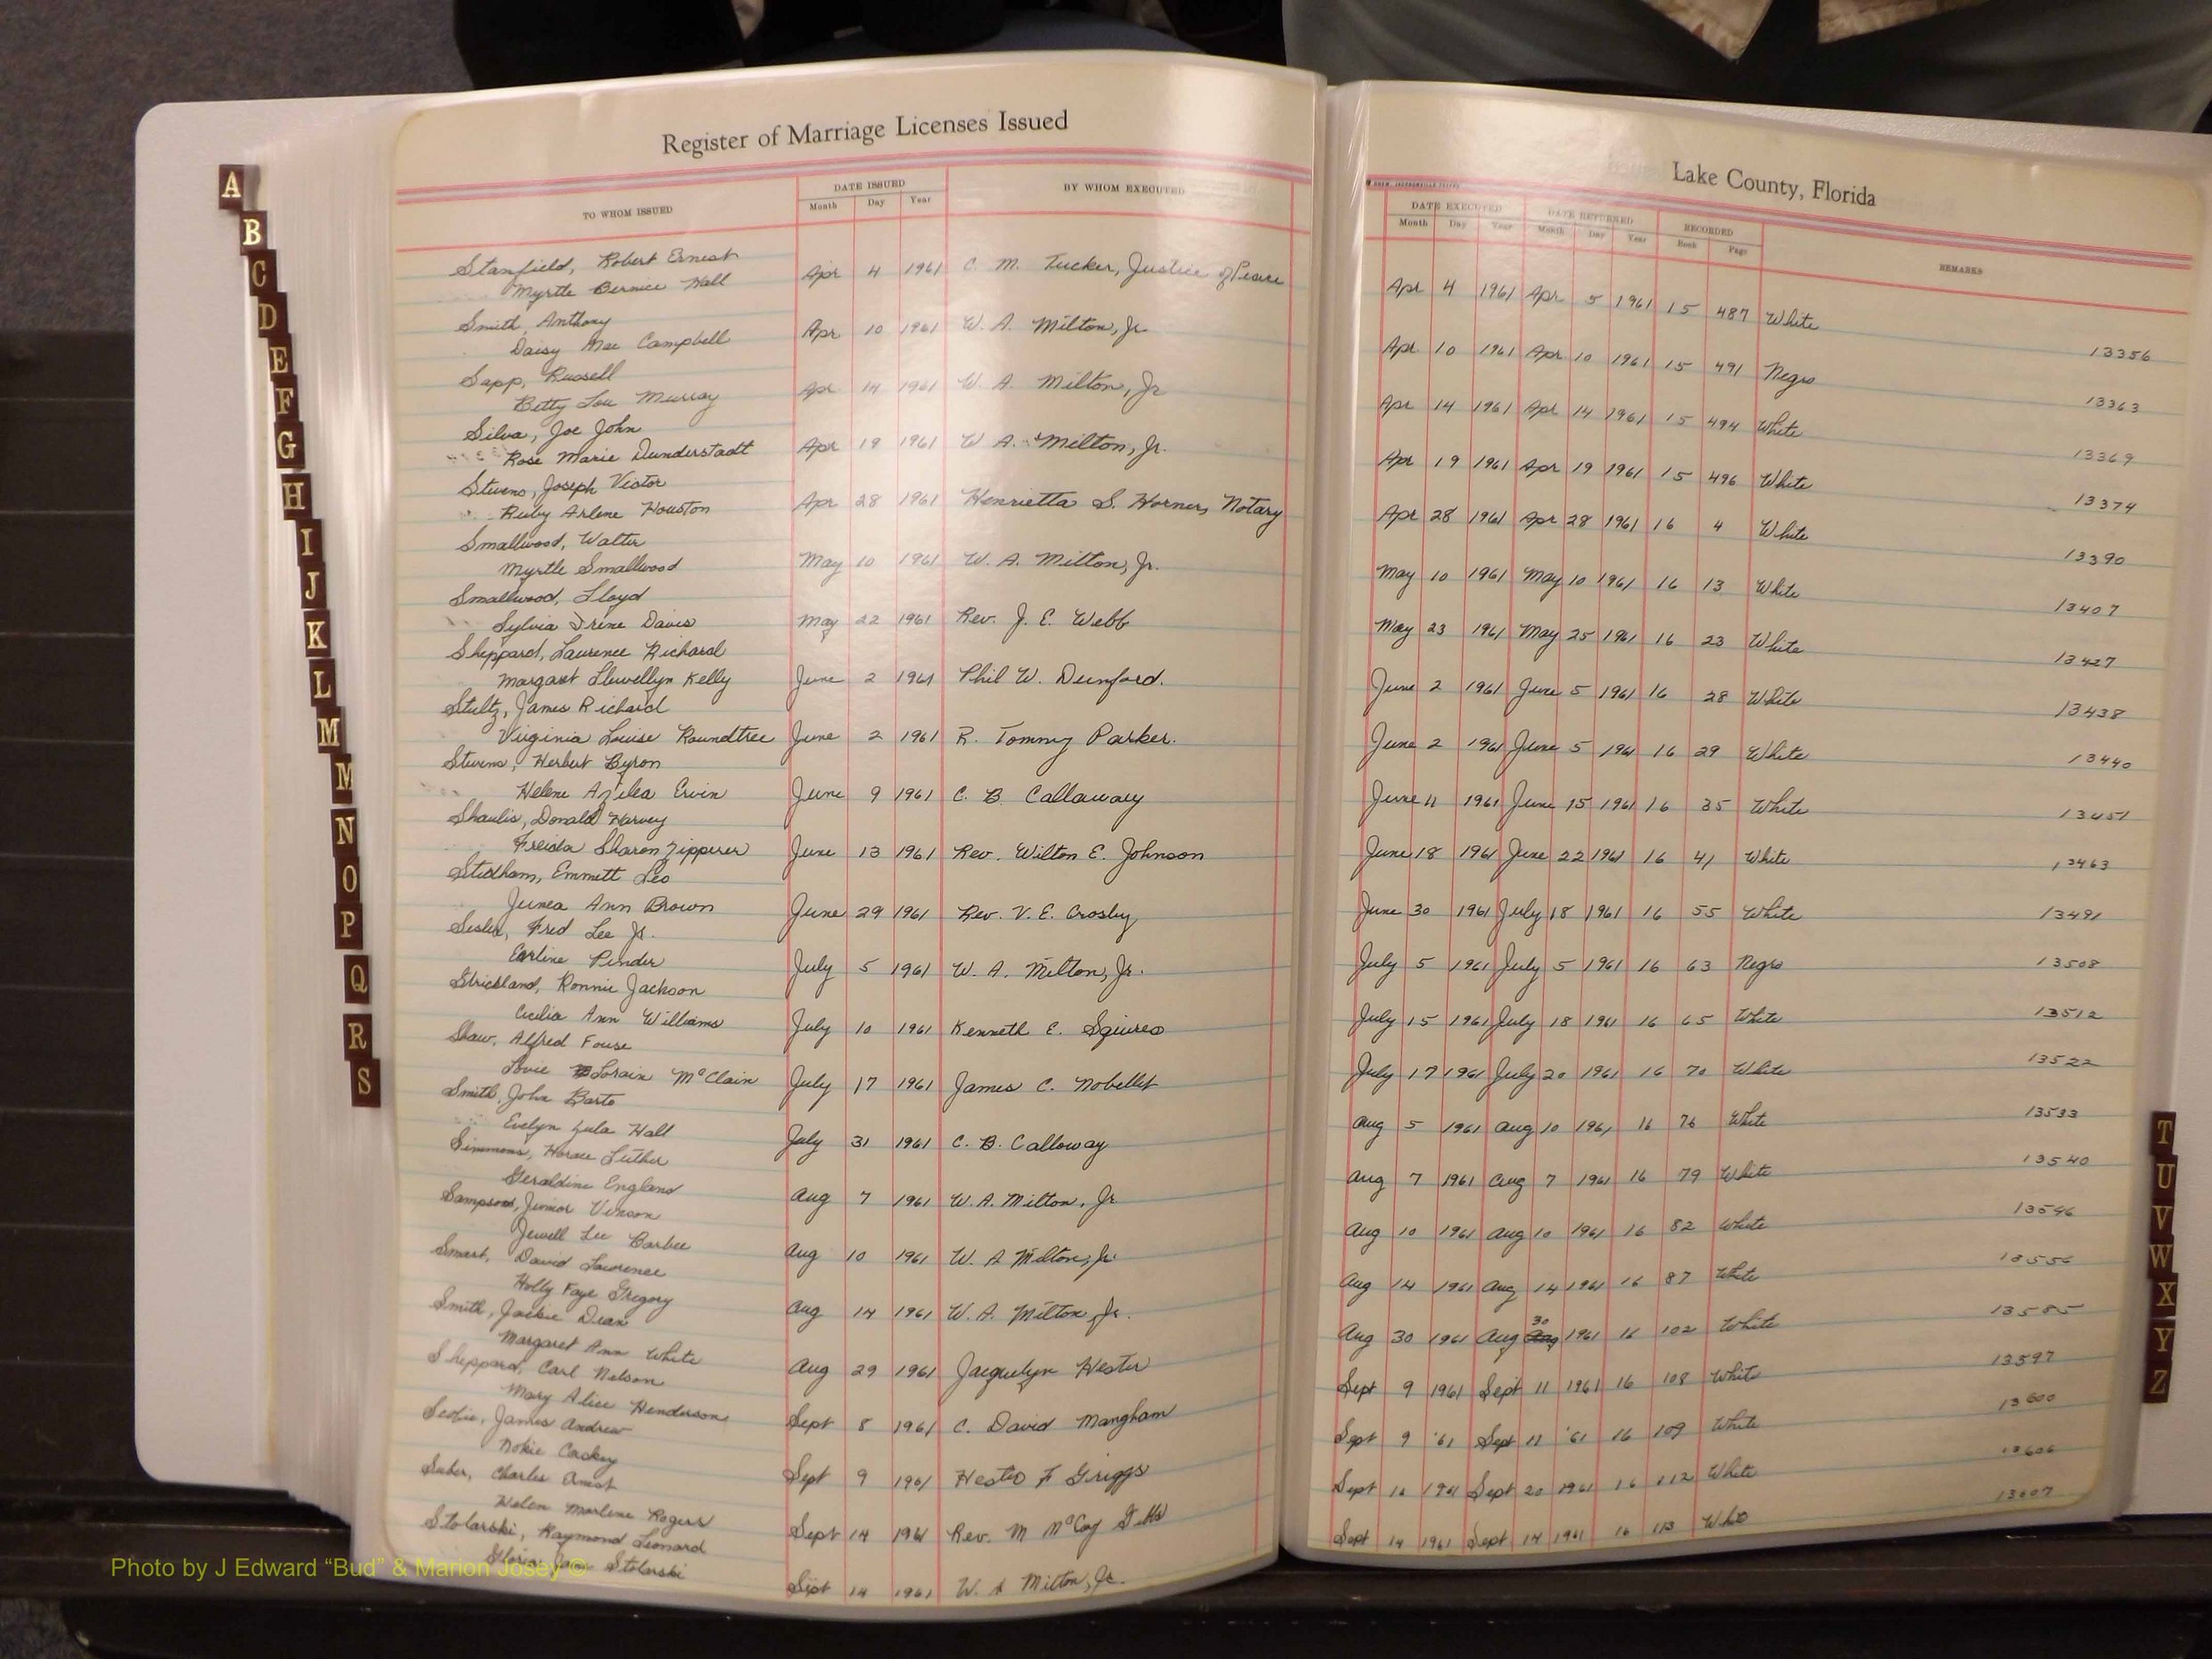 Register of Marriage Licenses Issued
TO WHOM ISSUED
DATE ISSUED
BY WHOM EXECUTED
Month Day Year
Stanfield, Robert Ernest
Myrtle Bernice Hall Apr 4 1961 C. M. Tucker, Justice of Peace
Smith, Anthony
Daisy Mae Campbell Apr 10 1961 W. A. Milton, Jr.
Sapp, Russell
Betty Lou Murray Apr 14 1961 W. A. Milton, Jr
Silva, Joe John
Rose Marie Dunderstadt Apr 19 1961 W A. Milton, Jr.
Stevens, Joseph Victor
Ruby Arlene Houston Apr 28 1961 Henrietta S. Horner, Notary
Smallwood, Walter
Myrtle Smallwood May 10 1961 W. A. Milton, Jr.
Smallwood, Lloyd
Sylvia Irene Davis May 22 1961 Rev. J. E. Webb
Sheppard, Laurence Richard
Margaret Llewellyn Kelly June 2 1961 Phil W. Dunford.
Stultz, James Richard
Virginia Louise Roundtree June 2 1961 R. Tommy Parker.
Stevens, Herbert Byron
Helene Azilea Ervin June 9 1961 C. B. Callaway
Shaulis, Donald Harvey
Freida Sharon Zipperer June 13 1961 Rev. Wilton E. Johnson
Stidham, Emmett Leo
Junea Ann Brown June 29 1961 Rev. V. E. Crosby
Sesler, Fred Lee Jr.
Earline Pinder July 5 1961 W. A. Milton, Jr.
Strickland, Ronnie Jackson
Cecilia Ann Williams July 10 1961 Kenneth E. Squires
Shaw, Alfred Fouse
Lovie Lorain McClain July 17 1961 James C. Nobellet
Smith, John Barto
Evelyn Zula Hall July 31 1961 C. B. Calloway
Simmons, Horace Luther
Geraldine England Aug 7 1961 W. A. Milton, Jr
Sampson, Junior Vinson
Jewell Lee Barbee Aug 10 1961 W. A Milton, Jr.
Smart, David Lawrence
Holly Faye Gregory Aug 14 1961 W. A. Milton Jr.
Smith, Jackie Dean
Margaret Ann White Aug 29 1961 Jacquelyn Hester
Sheppard, Carl Nelson
Mary Alice Henderson Sept 8 1961 C. David Mangham
Scobie, James Andrew
Nokie Cackey Sept 9 1961 Hesto F Griggs
Suber, Charles
Helen Marlene Rogers Sept 14 1961 Rev. M McCoy
Stolarski, Raymond Leonard
Gloria Stolarski Sept 14 1961 W. A Milton, Jr.
Lake County, Florida
DATE EXECUTED DATE RETURNED RECORDED REMARKS
Month Day Year Month Day Year Book Page
Apr 4 1961 Apr 5 1961 15 487 White 13356
Apr. 10 1961 Apr. 10 1961 15 491 Negro 13363
Apr 14 1961 Apr 14 1961 15 494 White 13369
Apr 19 1961 Apr 19 1961 15 496 White 13374
Apr 28 1961 Apr 28 1961 16 4 White 13390
May 10 1961 May 10 1961 16 13 White 13407
May 23 1961 May 25 1961 16 23 White 13427
June 2 1961 June 5 1961 16 28 White 13438
June 2 1961 June 5 1961 16 29 White 13440
June 11 1961 June 15 1961 16 35 White 13451
June 18 1961 June 22 1961 16 41 White 13463
June 30 1961 July 18 1961 16 55 White 13491
July 5 1961 July 5 1961 16 63 Negro 13508
July 15 1961 July 18 1961 16 65 White 13512
July 17 1961 July 20 1961 16 70 White 13522
Aug 5 1961 Aug 10 1961 16 76 White 13533
Aug 7 1961 Aug 7 1961 16 79 White 13540
Aug 10 1961 Aug 10 1961 16 82 White 13546
Aug 14 1961 Aug 14 1961 16 87 White 13556
Aug 30 1961 Aug 30 1961 16 102 White 13585
Sept 9 1961 Sept 11 1961 16 108 White 13597
Sept 9 '61 Sept 11 '61 16 109 White 13600
Sept 16 1961 Sept 20 1961 16 112 White 13606
Sept 14 1961 Sept 14 1961 16 113 White 13607
A
B
C
D
E
F
G
H
I
J
K
L
M
M
N
O
P
Q
R
S
T
U
V
W
X
Y
Z
Photo by J Edward “Bud” & Marion Josey ©